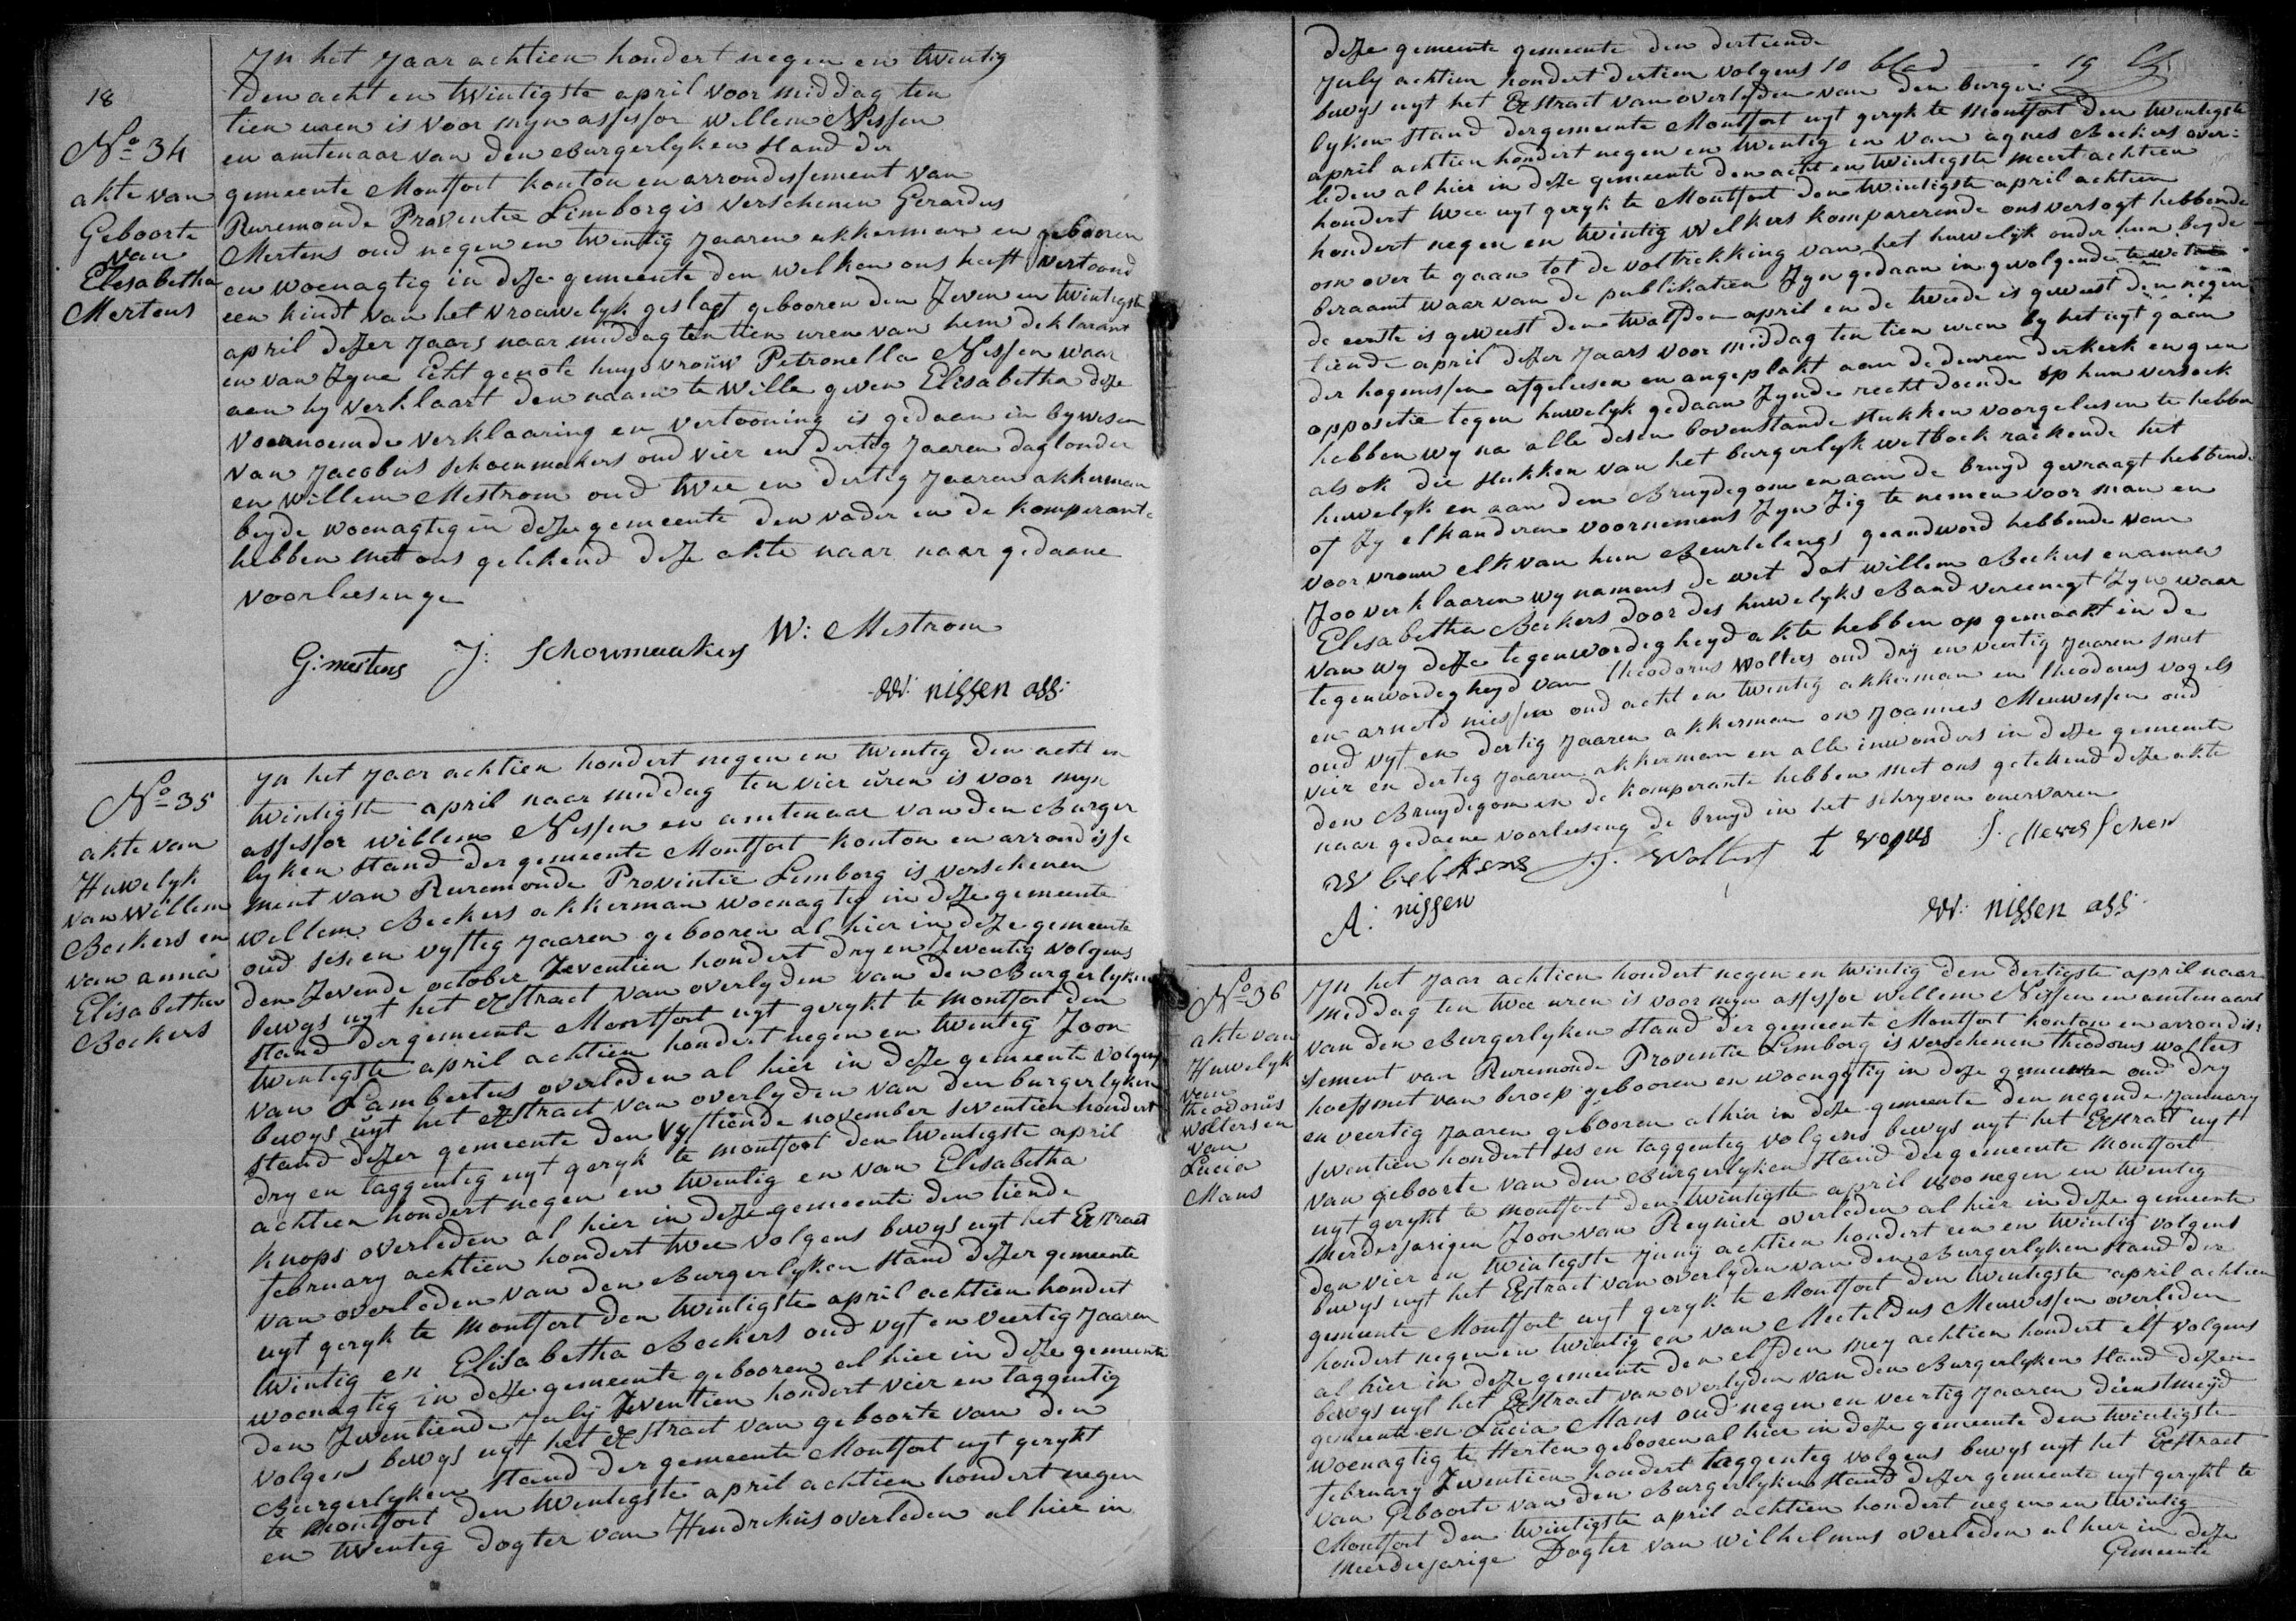 18
No 34
akte van
Geboorte
van
Elesabetha
Mertens
Jn het Jaar achtien hondert negen en twintig
den acht en twintigste april voor middag ten
tien uren is voor myn assessor willem Nissen
en amtenaar van den Burgerlyken stand der
gemeente Montfort konton en arrondissement van
Ruremonde Provintie Limborg is verschenen Gerardus
Mertens oud negen en twintig Jaaren akkerman en gebooren
en woenagtig in deze gemeente den welken ons heeft vertoond
een kindt van het vrouwelyk geslagt gebooren den Zeven en twintigste
april dezer Jaars naar middag ten tien uren van hem deklarant
en van Zyne Echt genote huysvrouw Petronella Nissen waar
aen hy verklaart den naam te wille geven Elisabetha deze
voornoemde verklaaring en vertooning is gedaan in bywesen
van Jacobus schoenmakers oud vier en dertig Jaaren daglonder
en willem Mestrom oud twee en dertig Jaaren akkerman
beyde woenagtig in deze gemeente den vader en de komperante
hebben mett ons getekend deze akte naar naar gedaane
voorleesenge
G: mertens J: Schoumaakers W: Mestrom
W: nissen ass:
No 35
akte van
Huwelyk
van Willem
Beckers en
van anna
Elisabetha
Beckers
Jn het Jaar achtien hondert negen en twentig den acht en
twintigste april naar middag ten vier uren is voor myn
assessor willem Nissen en amtenaar van den Burger
lyken stand der gemeente Montfort konton en arrondisse
ment van Ruremonde Provintie Limborg is verschenen
willem Beckers akkerman woenagtig in deze gemeente
oud ses en vyftig Jaaren gebooren al hier in deze gemeente
den Zevende october Zeventien hondert dry en Zeventig volgens
bewys uyt het Exstract van overlyden van den Burgerlyken
stand der gemeente Montfort uyt gerykt te montfort den
twentigste april achtien hondert negen en twentig Zoon
van Lambertus overleden al hier in deze gemeente volgens
bewys uyt het exstract van overlyden van den burgerlyken
stand dezer gemeente den vyftiende november seventien hondert
dry en taggentig uyt geryk te montfort den twentigste april
achtien hondert negen en twentig en van Elisabetha
knops overleden al hier in deze gemeente den tiende
february achtien hondert twee volgens bewys uyt het Exstract
van overleden van den Burgerlyken stand dezer gemeente
uyt geryk te Montfort den twintigste april achtien hondert
twintig en Elisabetha Beckers oud vyf en veertig Jaaren
woenagtig in deze gemeente gebooren al hier in deze gemeente
den Zeventiende July Zeventien hondert vier en taggentig
volgens bewys uyt het exstract van geboorte van den
Burgerlyken stand der gemeente Montfort uyt gerykt
te Montfort den twentigste april achtien hondert negen
en twentig dogter van Hendrekus overleden al hier in
deze gemeente gemeente den dertiende
July achtien hondert dertien volgens 10 blad 19
bewys uyt het Exstract van overlyden van den burger
lyken stand der gemeente Montfort uyt geryk te Montfort den twintigste
april achtien hondert negen en twintig en van agnes Beckers over=
leden al hier in deze gemeente den acht en twintigste meert achtien
hondert twee uyt geryk te Montfort den twintigste april achtien
hondert negen en twintig welkers komparerende ons versogt hebbende
om over te gaan tot de voltrekking van het huwelyk onder hun beyde
beraamt waar van de publikatien Zyn gedaan in gevolgende
de eerste is geweest den twalfden april en de twede is geweest den negen
tiende april dezer Jaars voor middag ten tien uren by het uyt gaan
der hogmissen afgelesen en angeplakt aan de deuren der kerk en geen
oppositie tegen huwelyk gedaan Zynde recht doende op hun versoek
hebben wy na alle desen bovenstande stukken voorgelesen te hebben
als ok die stukken van het burgerlyk wetboek rakende het
huwelyk en aan den Bruydegom en aan de bruyd gevraagt hebbende
of Zy elkanderen voornemens Zyn Zig te nemen voor man en
voor vrouw elk van hun Beurtelengs geandword hebbende van
Joo verklaaren wy namens de wet dat willem Beckers en anna
Elesabetha Beckers door des huwelyks Band vereenegt Zyn waar
van wy deze tegenwordeg heyd akte hebben op gemaakt in de
tegenwordeg heyd van theodorus wolters oud dry en veertig Jaaren smet
en arnold niessen oud acht en twintig akkerman en theodorus vogels
oud vyf en dertig Jaaren akkerman en Joannes Meuwissen oud
vier en derteg Jaaren akkerman en alle inwonders in deze gemeente
den Bruydegom en de komperante hebben met ons getekend deze akte
naar gedaene voorleeseng de bruyd in het schryven onervaren
W beckers T. Wolters t vogels J. Mewissen
A: nissen
W: nissen ass:
No 36
akte van
Huwelyk
van
theodorus
wolters en
van
Lucia
Mans
Jn het Jaar achtien hondert negen en twintig den dertigste april naar
middag ten twee uren is voor myn assessor willem Nissen en amtenaar
van den Burgerlyken stand der gemeente Montfort konton en arrondis:
sement van Ruremonde Proventie Limborg is verschenen theodorus wolters
hoefsmet van beroep gebooren en woenagtig in deze gemeenten oud dry
en veertig Jaaren gebooren alhier in deze gemeente den negende January
seventien hondert ses en taggentig volgens bewys uyt het Exstract uyt
van geboorte van den Burgerlyken stand der gemeente Montfort
uyt gerykt te montfort den twintigste april 1800 negen en twentig
Merderjarigen Zoon van Reynier overleden al hier in deze gemeente
den vier en twintigste Juny achtien hondert een en twintig volgens
bewys uyt het Exstract van overlyden van den Burgerlyken stand der
gemeente Montfort uyt geryk te Montfort den twintigste april achtien
hondert negen en twintig en van Mecteldus Meuwissen overleden
al hier in deze gemeente den elfden mey achtien hondert elf volgens
bewys uyt het Exstract van overlyden van den Burgerlyken stand dezer
gemeente en Lucia Mans oud negen en veertig Jaaren dienstmeyd
woenagtig te Herten gebooren al hier in deze gemeente den twintigste
february Zeventien hondert taggentig volgens bewys uyt het Exstract
van Geboorte van den Burgerlyken stand dezer gemeente uyt gerykt te
Montfort den twintigste april achtien hondert negen en twintig
meerderjarige Dogter van wilhelmus overleden al hier in deze
Gemeente